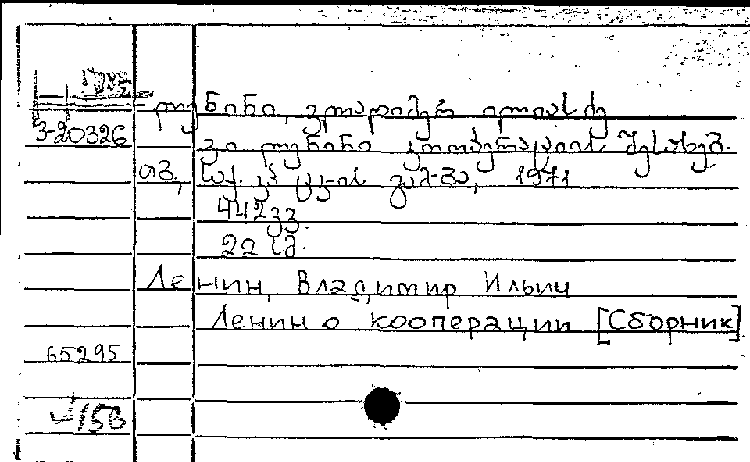 ლენინი, ვლადიმერ ილიას ძე
3-20326
ვ. ი. ლენინი კოოპერაციის შესახებ.
თბ., საქ. კპ ცკ-ის გამ-ბა, 1971
442 გვ.
22 სმ.
Ленин, Владимир Ильич
Ленин о кооперации [Сборник]
65295
158